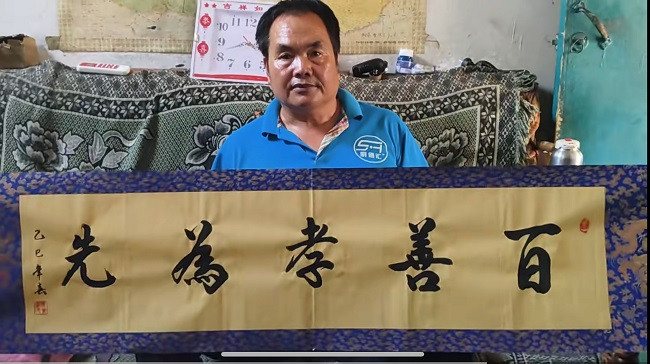 吉祥如
恭
喜
10 11 12
9
8 7 6
百善孝為先
乙巳年春